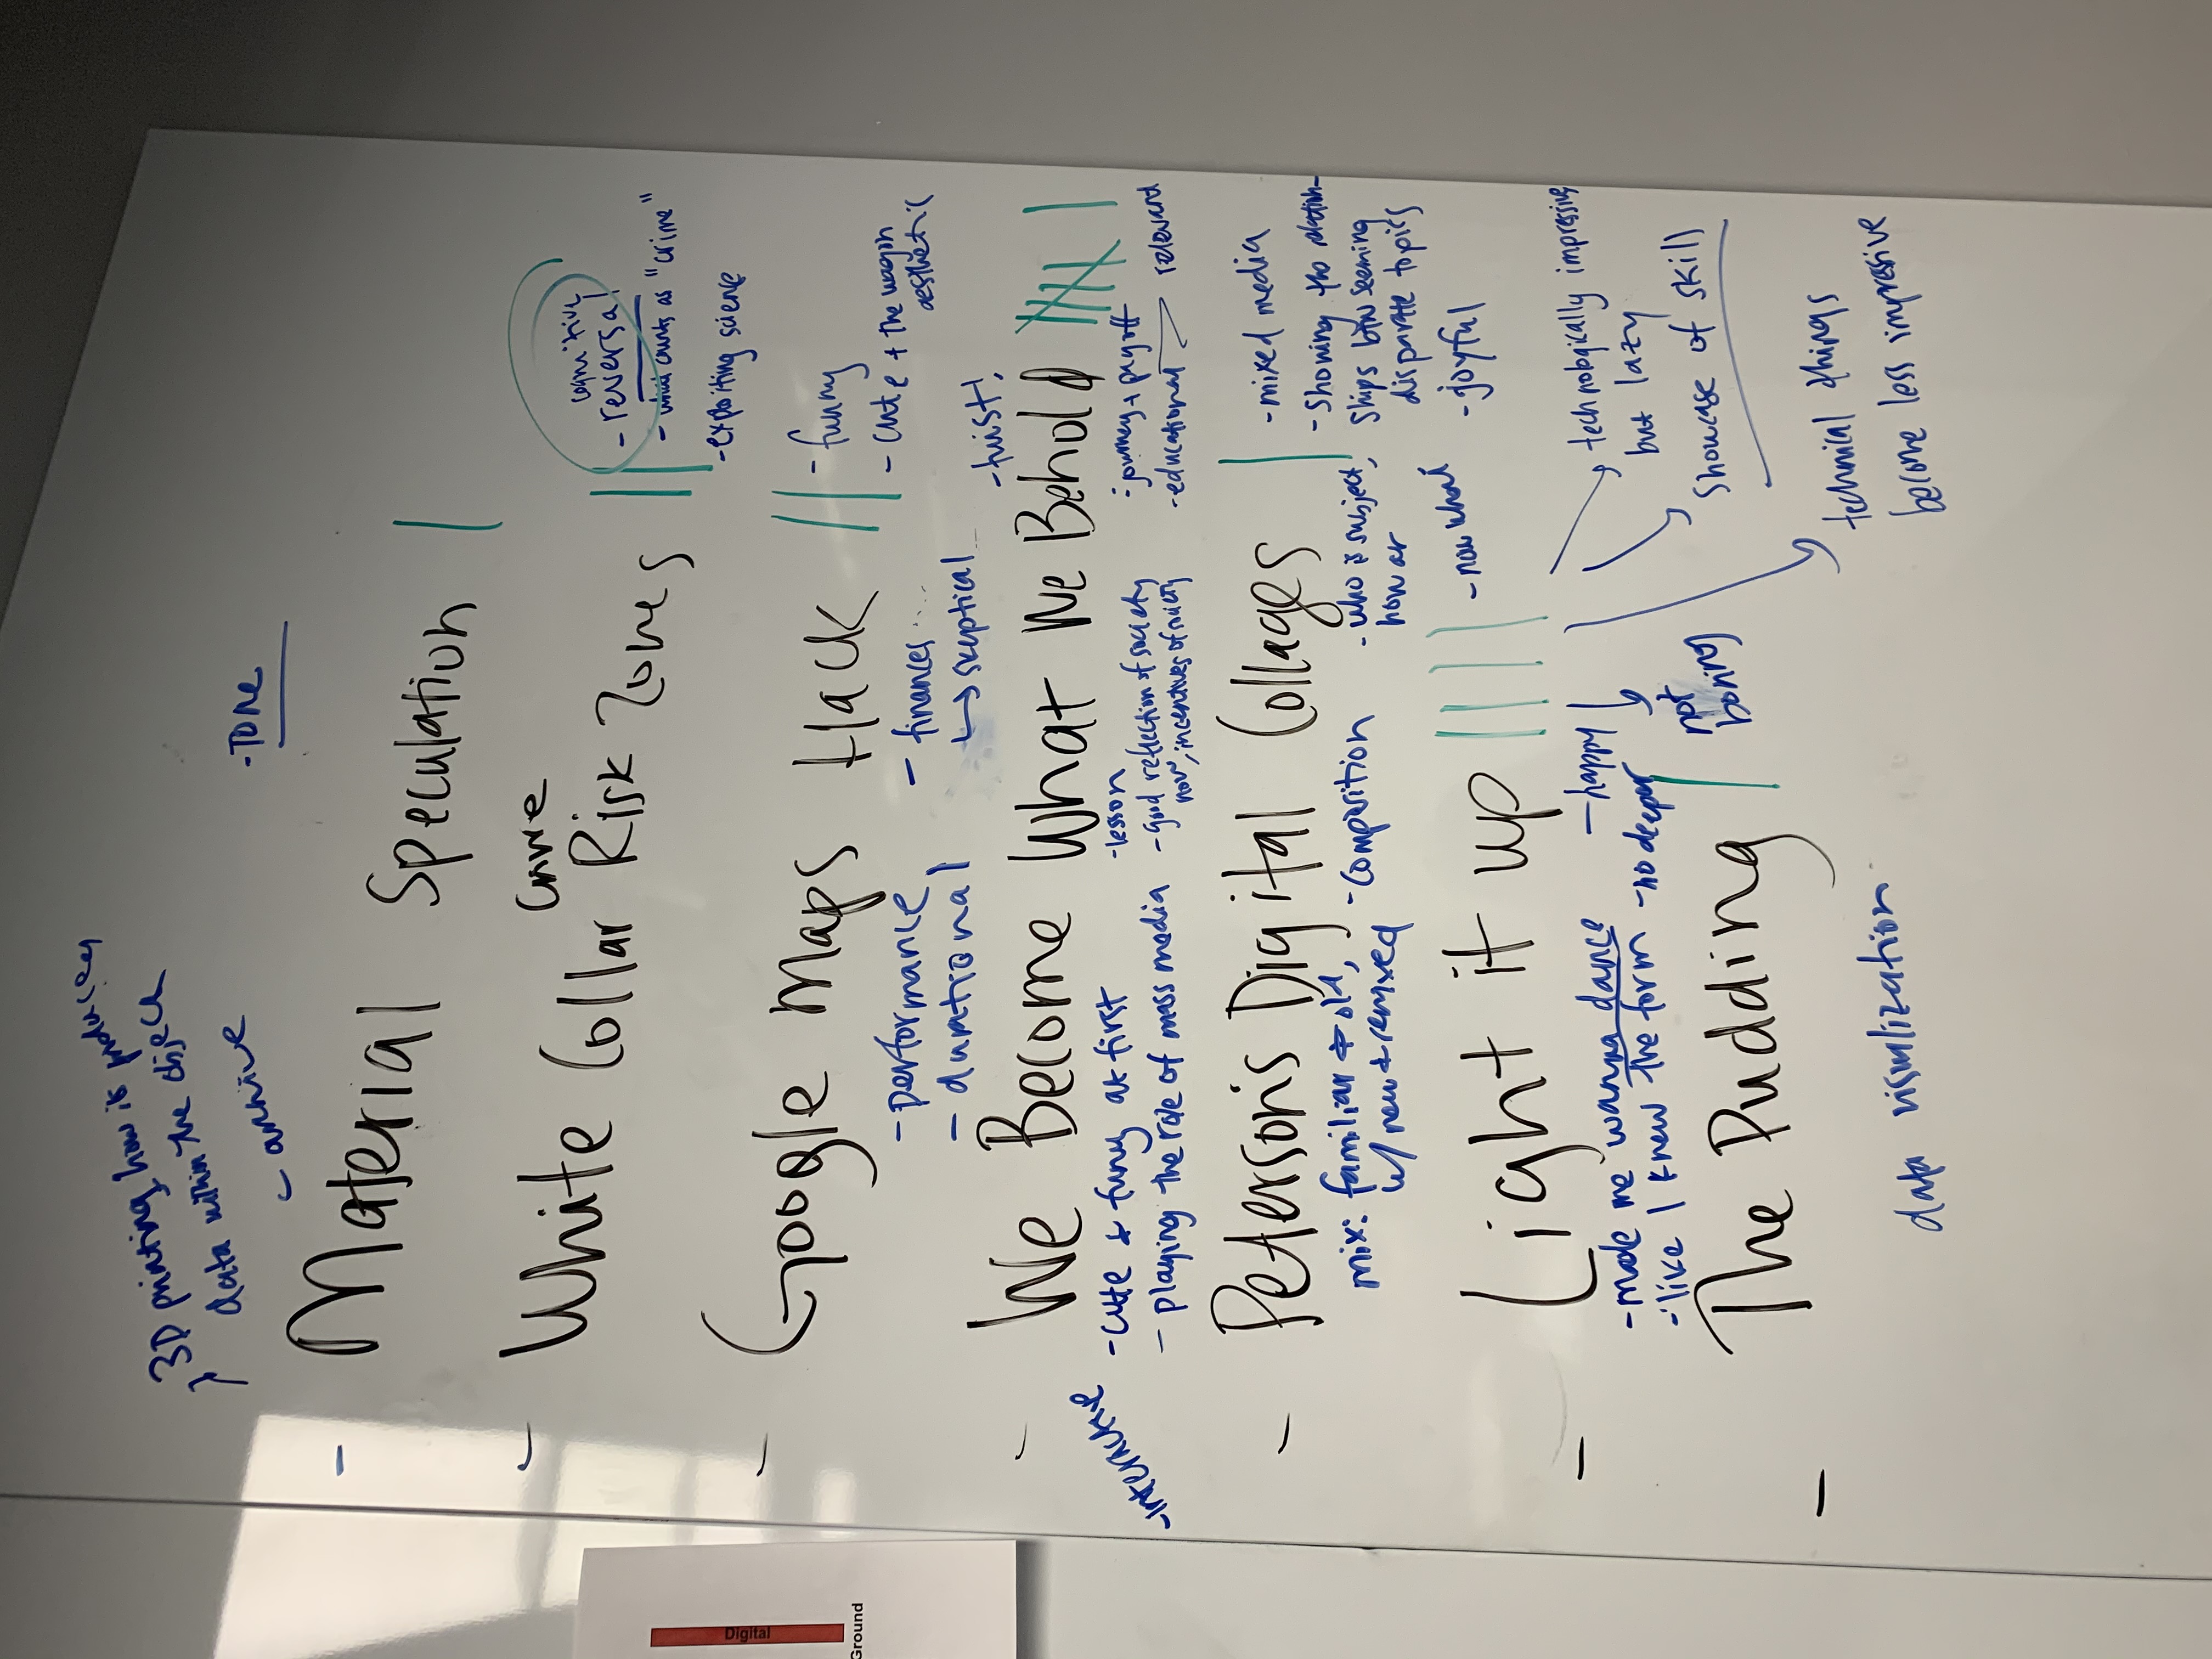 3D printing, how it is produced
data within the object
- archive
- Tone
- Material Speculation |
- White Collar Crime Risk Zones ||
cognitive
- reversal
- what counts as "crime"
- exploiting science
Digital
Ground
- Google Maps Hack ||
- funny
- cute + the wagon
aesthetic
- performance
- durational
- finances
↳ skeptical
- twist!
- We Become What We Behold |||| |
- interactive
- cute & funny at first
- playing the role of mass media
- lesson
- good reflection of society
now, incentives of society
- journey + payoff
- educational
relevant
- Peterson's Digital Collages |
mix: familiar & old,
w/ new & remixed
- composition
- who is subject,
how ar
- now what
- mixed media
- Showing the relation-
ships btw seeming
disparate topics
- joyful
- Light it up ||||
- made me wanna dance
- like I knew the form
- happy
- no deeper
not
boring
technologically impressive
but lazy
Showcase of skill
technical things
become less impressive
- The Pudding |
data visualization